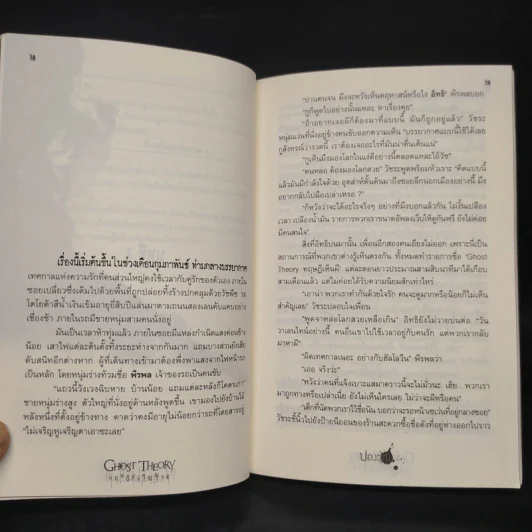 18
เรื่องนี้เริ่มต้นขึ้น ในช่วงเดือนกุมภาพันธ์ ท่ามกลางบรรยากาศ
เทศกาลแห่งความรักที่คนส่วนใหญ่คงใช้เวลากับคู่รักของตัวเอง ภายใน
ซอยเปลี่ยวซึ่งเต็มไปด้วยพื้นที่ถูกปล่อยทิ้งร้างปกคลุมด้วยวัชพืช รถ
โตโยต้าสีน้ำเงินเข้มอายุยี่สิบปีแล่นมาตามถนนสองเลนคับแคบอย่าง
เชื่องช้า ภายในรถมีชายหนุ่มสามคนนั่งอยู่
มันเป็นเวลาห้าทุ่มแล้ว ภายในซอยมีแหล่งกำเนิดแสงค่อนข้าง
น้อย เสาไฟแต่ละต้นตั้งทิ้งระยะห่างจากกันมาก แถมบางส่วนยังเสีย
ดับสนิทอีกต่างหาก ผู้ที่เดินทางเข้ามาต้องพึ่งพาแสงจากไฟหน้ารถ
เป็นหลัก โดยหนุ่มร่างท้วมชื่อ พีรพล เจ้าของรถเป็นคนขับ
"แถวนี้วังเวงฉิบหาย บ้านน้อย แถมแต่ละหลังก็โคตรเก่า"
ชายหนุ่มร่างสูง ตัวใหญ่ที่นั่งอยู่ด้านหลังพูดขึ้น เขามองไปยังบ้านไม้
หลังหนึ่งที่ตั้งอยู่ข้างทาง คาดว่าคงมีอายุไม่น้อยกว่ารถที่โดยสารอยู่
"ไม่เจริญหูเจริญตาเอาซะเลย"
GHOST THEORY
ทฤษฎีเห็นผี
19
"ย่านคนจน มึงจะหวังเห็นคฤหาสน์หรือไง อิทธิ" พีรพลบอก
"กูก็พูดไปอย่างนั้นแหละ หาเรื่องคุย"
"ถ้าอยากเจอผีก็ต้องมาที่แบบนี้ มันก็ถูกอยู่แล้ว" วัชระ
หนุ่มแว่นที่นั่งอยู่ข้างคนขับออกความเห็น "บรรยากาศแบบนี้ใช้ได้เลย
กูสังหรณ์ว่างวดนี้ เราต้องเจออะไรที่มันน่าตื่นเต้นแน่"
"กูเห็นมึงมองโลกในแง่ดีอย่างนี้ตลอดแหละไอ้วัช"
"คนหล่อ ต้องมองโลกสวย" วัชระพูดพร้อมหัวเราะ "คิดแบบนี้
แล้วมันมีกำลังใจด้วย อุตส่าห์ดั้นด้นมาถึงซอยลึกนอกเมืองอย่างนี้ มึง
อยากกลับไปมือเปล่าเหรอ ?"
"ก็หวังว่าจะได้อะไรจริงๆ อย่างที่มึงบอกแล้วกัน ไม่งั้นเปลือง
เวลา เปลืองน้ำมัน รายการพวกเราขนาดอัพลงเว็บให้ดูกันฟรี ยังไม่ค่อย
มีคนสนใจ"
สิ่งที่อิทธิบ่นมานั้น เพื่อนอีกสองคนเถียงไม่ออก เพราะนี่เป็น
สถานการณ์ที่พวกเขาต่างรู้เห็นตรงกัน ทั้งหมดทำรายการชื่อ "Ghost
Theory ทฤษฎีเห็นผี" แต่ละตอนยาวประมาณสามสิบนาทีมาได้เกือบ
สามเดือนแล้ว แต่ไม่ค่อยได้รับความนิยมสักเท่าไหร่
"เอาน่า พวกเราทำกันด้วยใจรัก คนจะดูมากหรือน้อยก็ไม่เห็น
สำคัญเลย" วัชระปลอบใจเพื่อน
"พูดจาหล่อโลกสวยเหลือเกิน" อิทธิยังไม่วายบ่นต่อ "วัน
วาเลนไทน์อย่างนี้ คนอื่นเขาไปใช้เวลาอยู่กับคนรัก แต่พวกเรากลับ
มาหาผี"
"ผิดเทศกาลเนอะ อย่างกับฮัลโลวีน" พีรพลว่า
"เออ จริงว่ะ"
"หวังว่าคนที่แจ้งเบาะแสมาคราวนี้จะไม่มั่วนะ เฮ้ย พวกเรา
มาถูกทางหรือเปล่าเนี่ย ยังไม่เห็นใครเลย ไม่ว่าจะผีหรือคน"
"เด็กที่นัดพวกเราไว้ชื่อนัน บอกว่าจะรอหน้าเซเว่นที่อยู่กลางซอย"
วัชระชี้นิ้วไปยังป้ายนีออนของร้านสะดวกซื้อชื่อดังที่อยู่ห่างออกไปราว